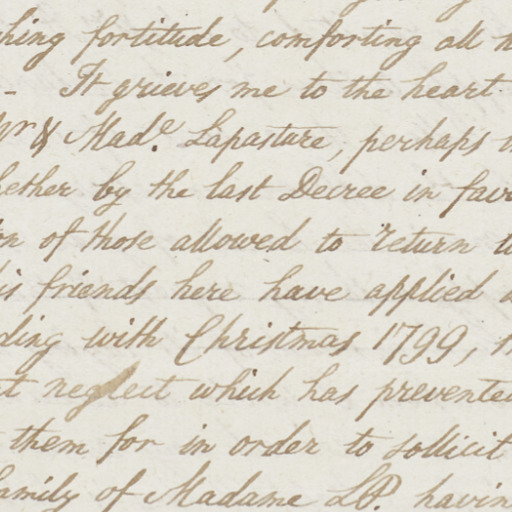 hing fortitude, comforting all
- It grieves me to the heart
Mr & Made. Lapasture, perhaps
hether by the last Decree in fav
on of those allowed to return t
is friends here have applied
ding with Christmas 1799,
t neglect which has prevented
them for in order to sollicit
family of Madame LP. havin